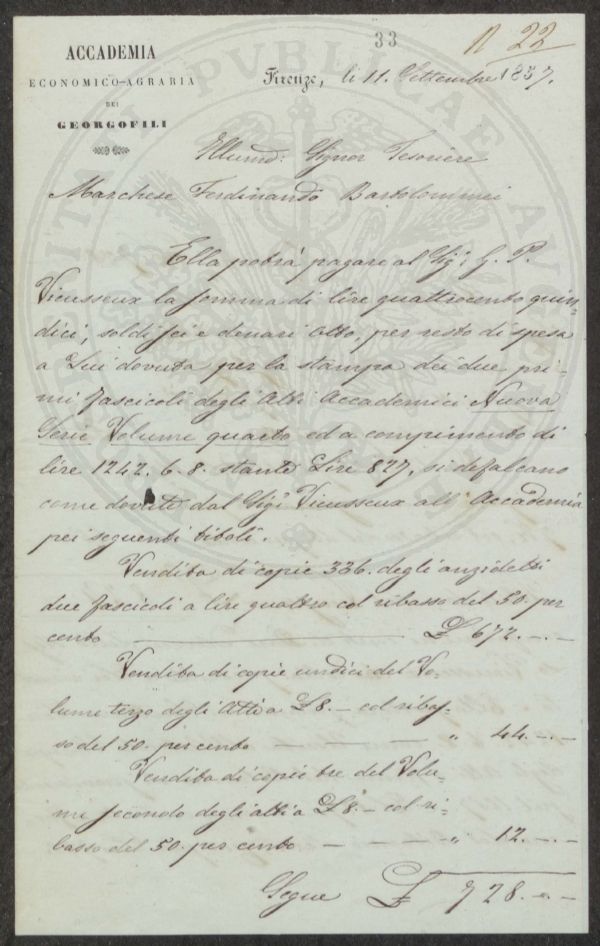 33
N 22
ACCADEMIA
ECONOMICO-AGRARIA
DEI
GEORGOFILI
Firenze, li 11. Settembre 1857.
Illumo: Signor Tesoriere
Marchese Ferdinando Bartolommei
Ella potrà pagare al Sigr. G. P.
Vieusseux la somma di lire quattrocento quin-
dici, soldi sei e denari otto, per resto di spesa
a Lui dovuta per la stampa dei due pri-
mi fascicoli degli Atti Accademici Nuova
Serie Volume quarto ed a compimento di
lire 1242. 6. 8. stante Lire 827, si defalcano
come dovute dal Sigr Vieusseux all' Accademia
pei seguenti titoli.
Vendita di copie 336. degli anzidetti
due fascicoli a lire quattro col ribasso del 50. per
cento £ 672. -. -
Vendita di copie undici del Vo-
lume terzo degli Atti a £ 8. - col ribas-
so del 50. per cento - - - " 44. -. -
Vendita di copie tre del Volu-
me secondo degli atti a £ 8. - col ri-
basso del 50. per cento - - - " 12. -. -
Segue £ 728. -. -